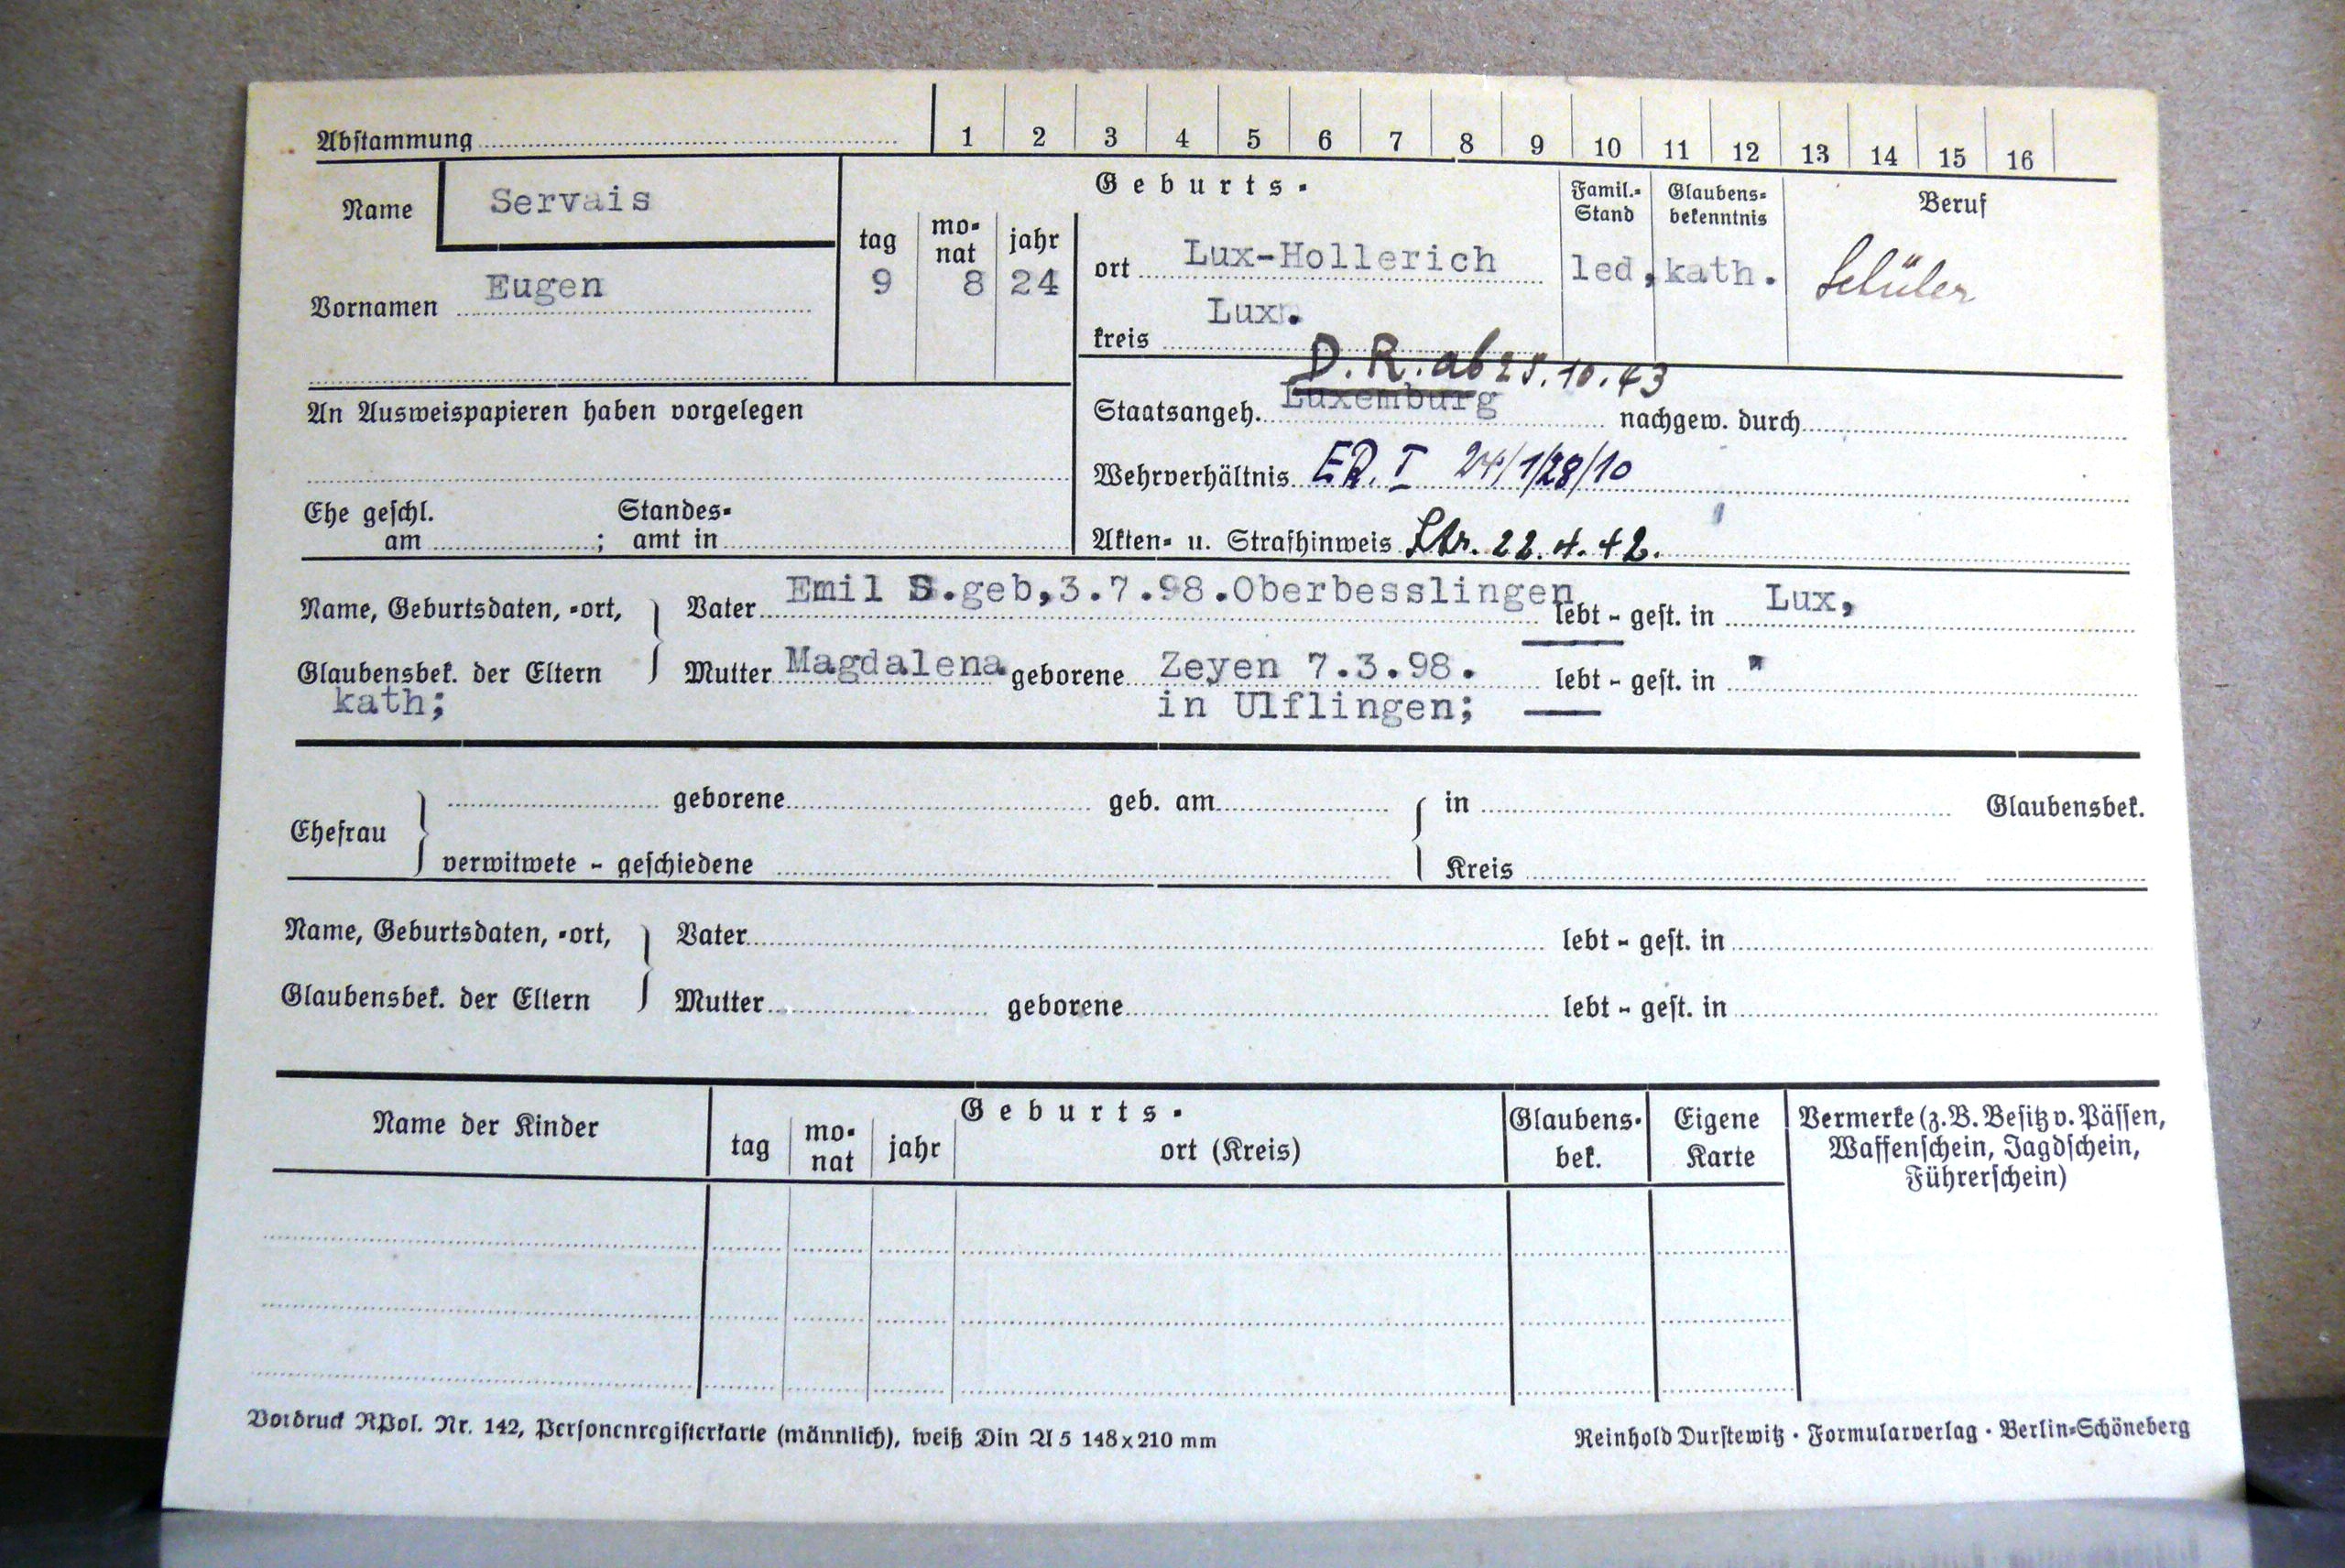 Abstammung 1 2 3 4 5 6 7 8 9 10 11 12 13 14 15 16
Name Servais
Geburts-
Famil.- Stand
Glaubens- bekenntnis
Beruf
tag mo- nat jahr
ort Lux-Hollerich
led, kath. Schüler
Vornamen Eugen 9 8 24
kreis Lux.
D.R. ab 25.10.43
An Ausweispapieren haben vorgelegen
Staatsangeh. Luxemburg nachgew. durch
Wehrverhältnis ER. I 24/1/28/10
Ehe geschl. Standes-
am ; amt in
Akten- u. Strafhinweis 22.4.42.
Name, Geburtsdaten, -ort, Vater Emil S.geb,3.7.98.Oberbesslingen lebt - gest. in Lux,
Glaubensbek. der Eltern Mutter Magdalena geborene Zeyen 7.3.98. lebt - gest. in "
kath; in Ulflingen;
geborene geb. am in Glaubensbek.
Ehefrau
verwitwete - geschiedene Kreis
Name, Geburtsdaten, -ort, Vater lebt - gest. in
Glaubensbek. der Eltern Mutter geborene lebt - gest. in
Name der Kinder
Geburts-
tag mo- nat jahr ort (Kreis)
Glaubens- bek.
Eigene Karte
Vermerke (z.B. Besitz v. Pässen,
Waffenschein, Jagdschein,
Führerschein)
Vordruck RPol. Nr. 142, Personenregisterkarte (männlich), weiß Din A 5 148x210 mm
Reinhold Durstewitz · Formularverlag · Berlin-Schöneberg